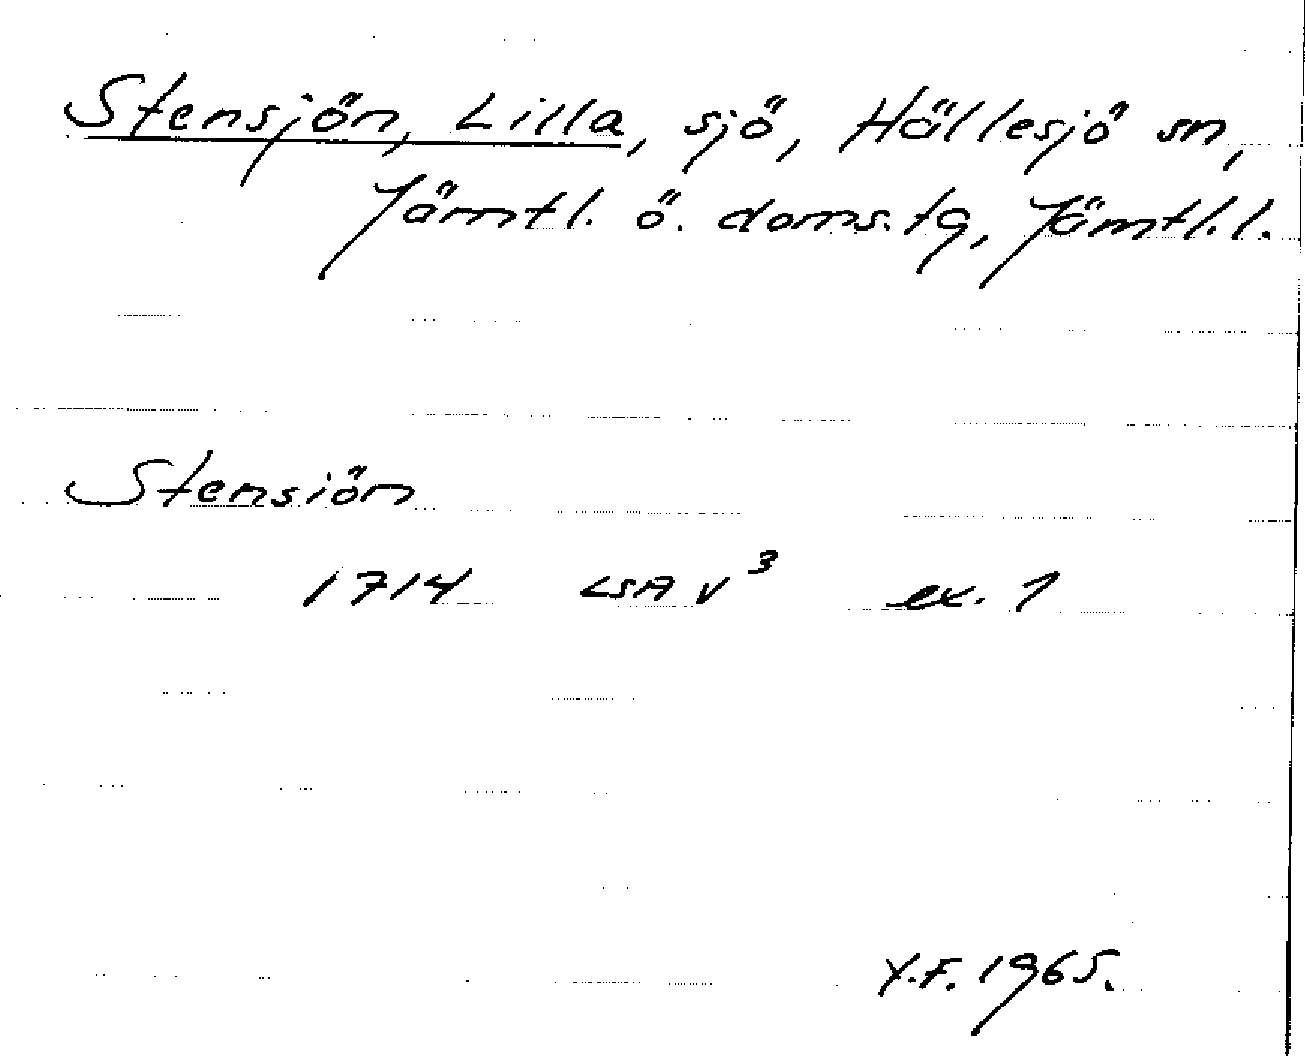 Stensjön, Lilla, sjö, Hällesjö sn,
Jämtl. ö. doms.tg, Jämtl.l.
Stensiön
1714 LSA V³ ex. 1
Y.F. 1965.